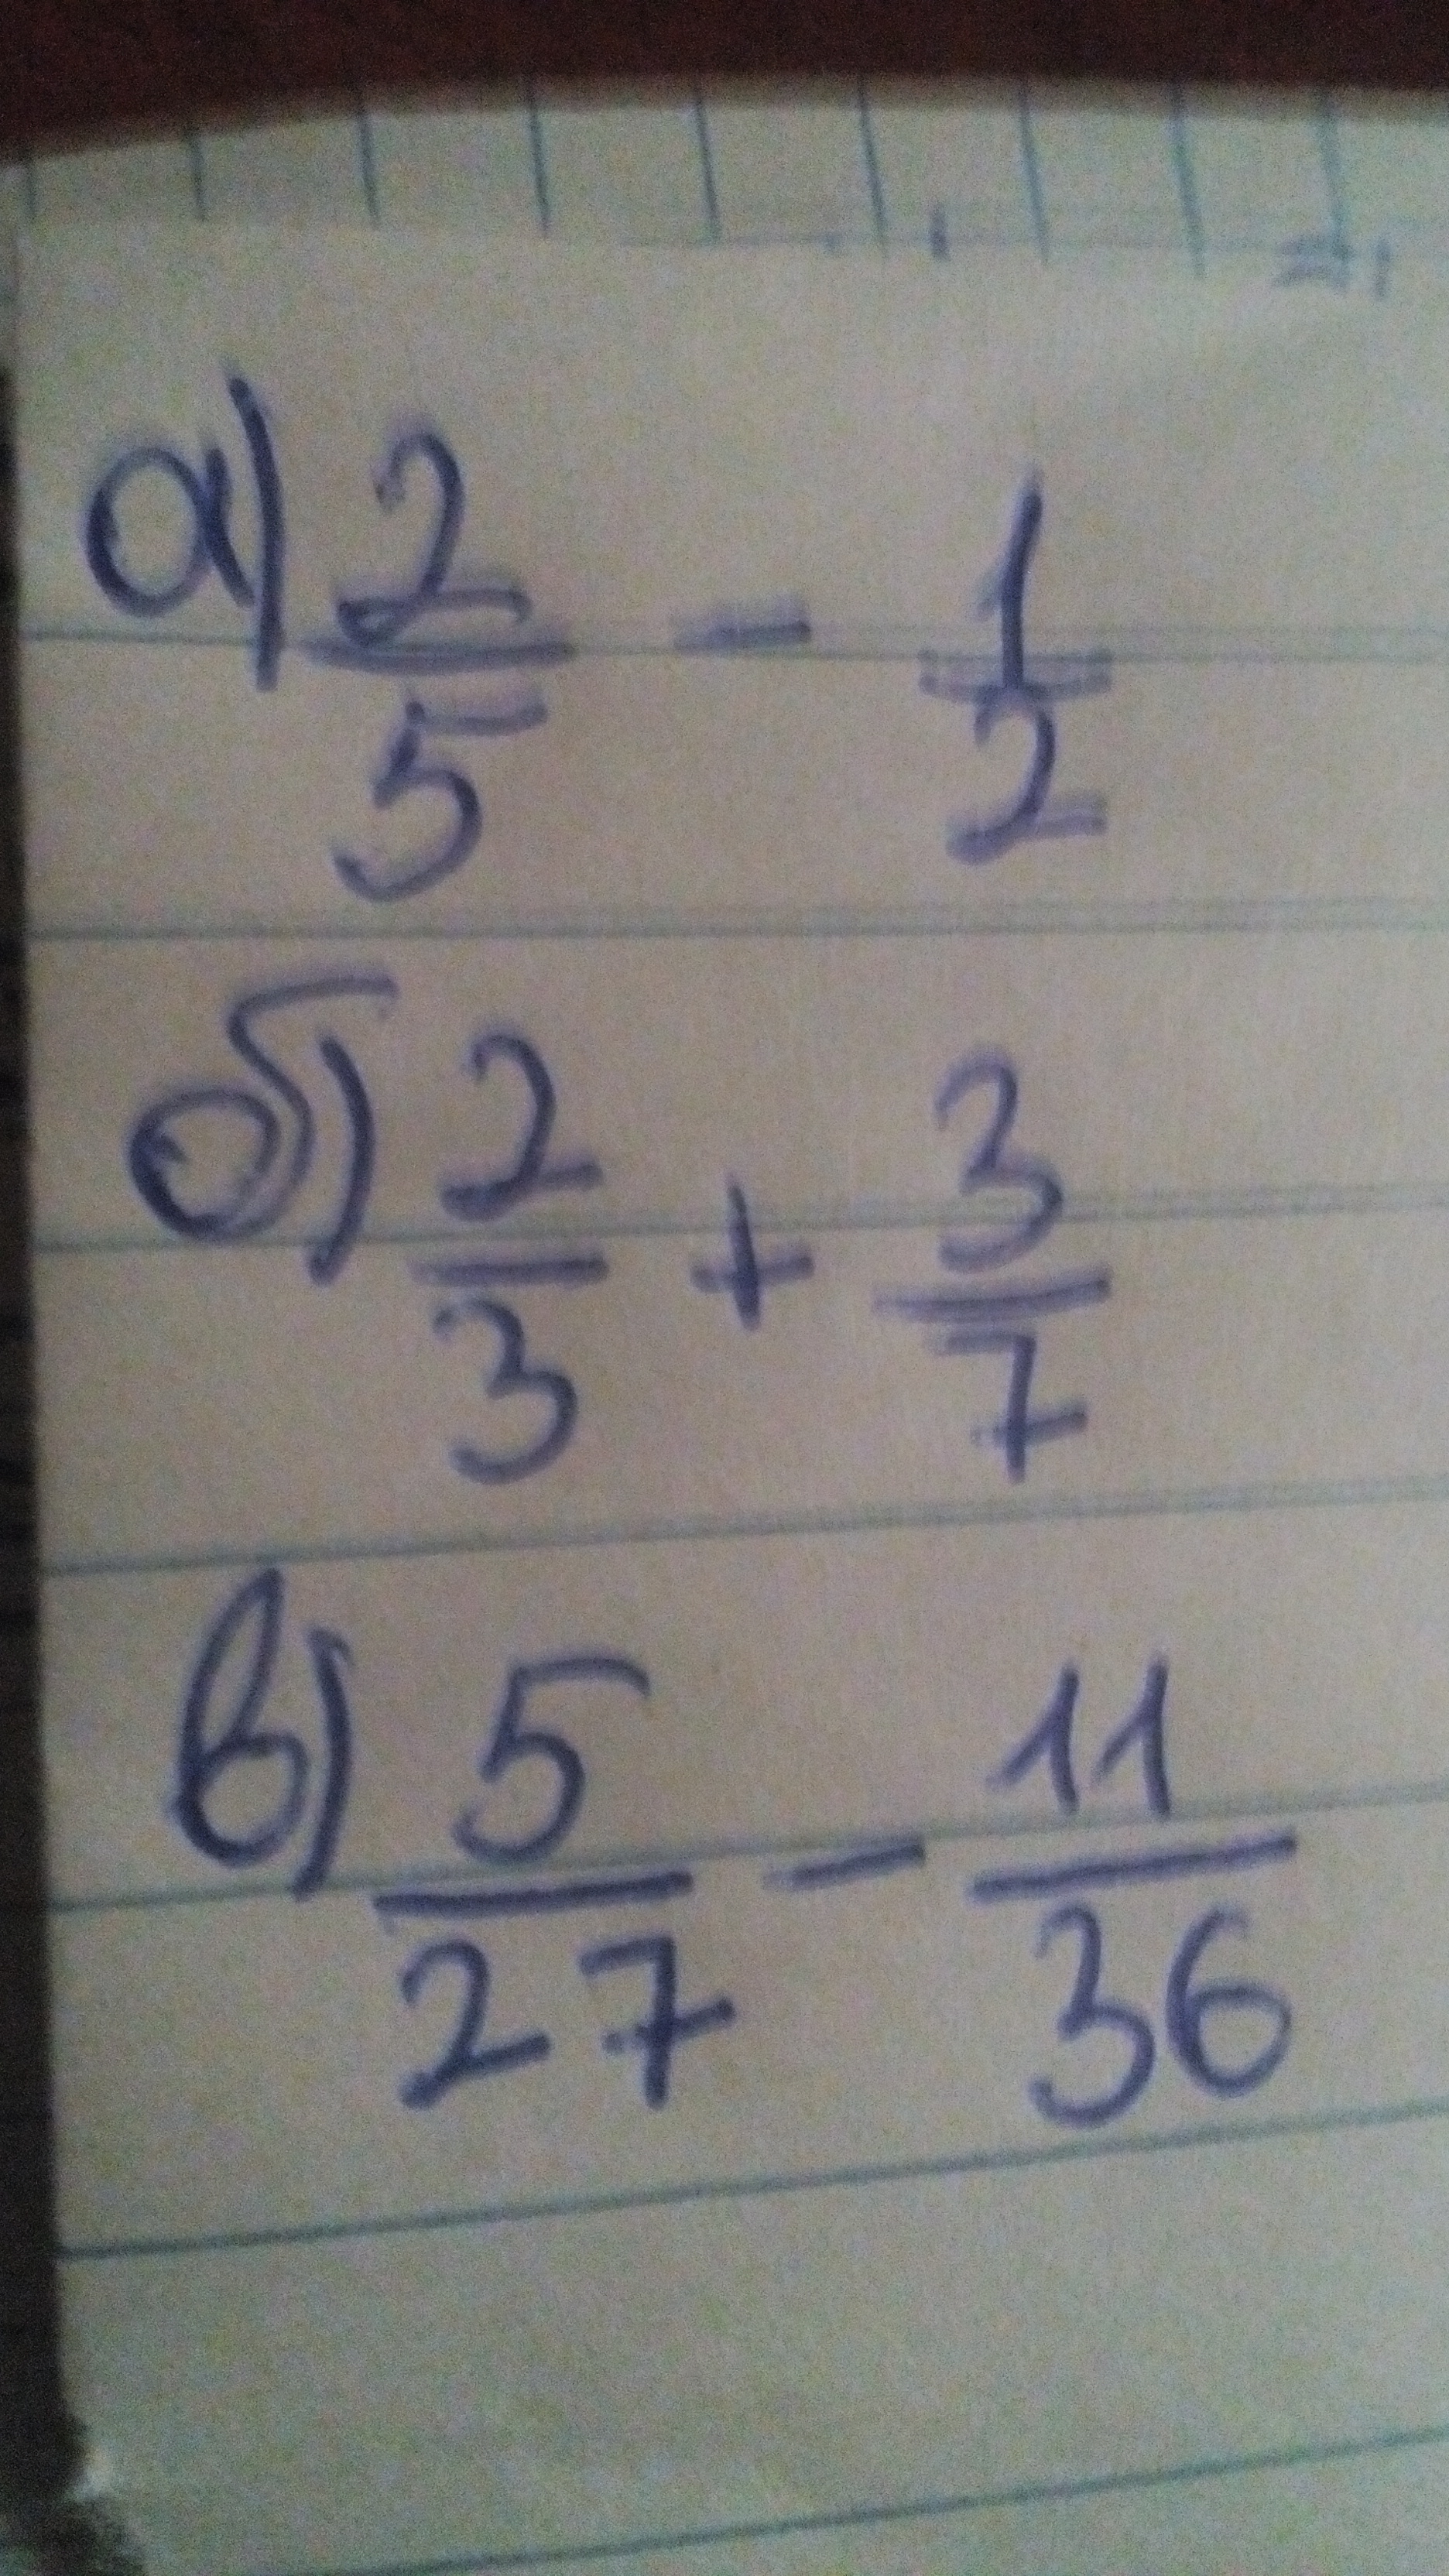 а) 2/5 - 1/2
б) 2/3 + 3/7
в) 5/27 - 11/36